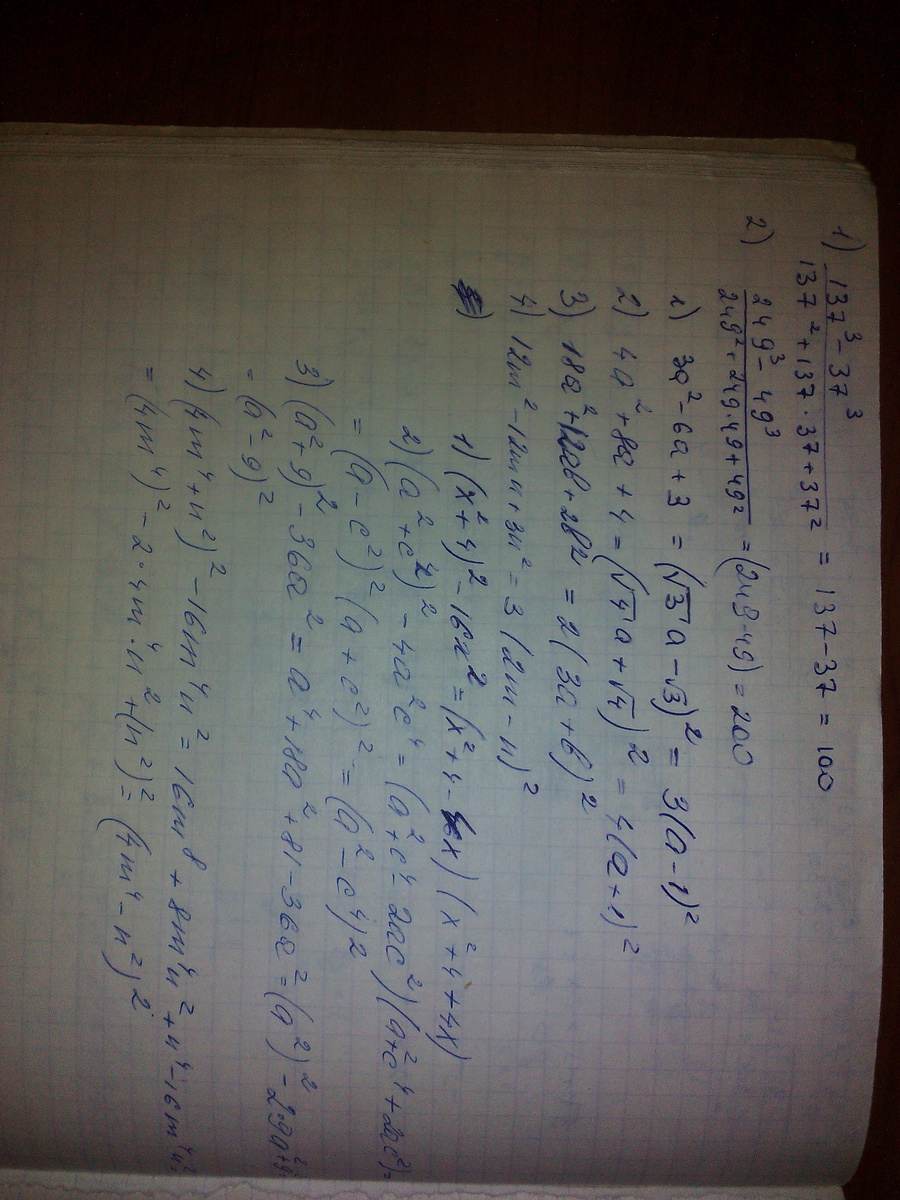 1) 137³ - 37³ / 137² + 137 · 37 + 37² = 137 - 37 = 100
2) 249³ - 49³ / 249² + 249 · 49 + 49² = (249 - 49) = 200
1) 3a² - 6a + 3 = (√3 a - √3)² = 3(a - 1)²
2) 4a² + 8a + 4 = (√4 a + √4)² = 4(a + 1)²
3) 18a² + 12ab + 2b² = 2(3a + b)²
4) 12m² - 12mn + 3n² = 3(2m - n)²
1) (x² + 4)² - 16x² = (x² + 4 - 4x)(x² + 4 + 4x)
2) (a² + c⁴)² - 4a²c⁴ = (a² + c⁴ - 2ac²)(a² + c⁴ + 2ac²) =
= (a - c²)² (a + c²)² = (a² - c⁴)2
3) (a² + 9)² - 36a² = a⁴ + 18a² + 81 - 36a² = (a²)² - 2·9a² + 9²
= (a² - 9)²
4) (4m⁴ + n²)² - 16m⁴n² = 16m⁸ + 8m⁴n² + n⁴ - 16m⁴n² =
= (4m⁴)² - 2 · 4m⁴n² + (n²)² = (4m⁴ - n²)²